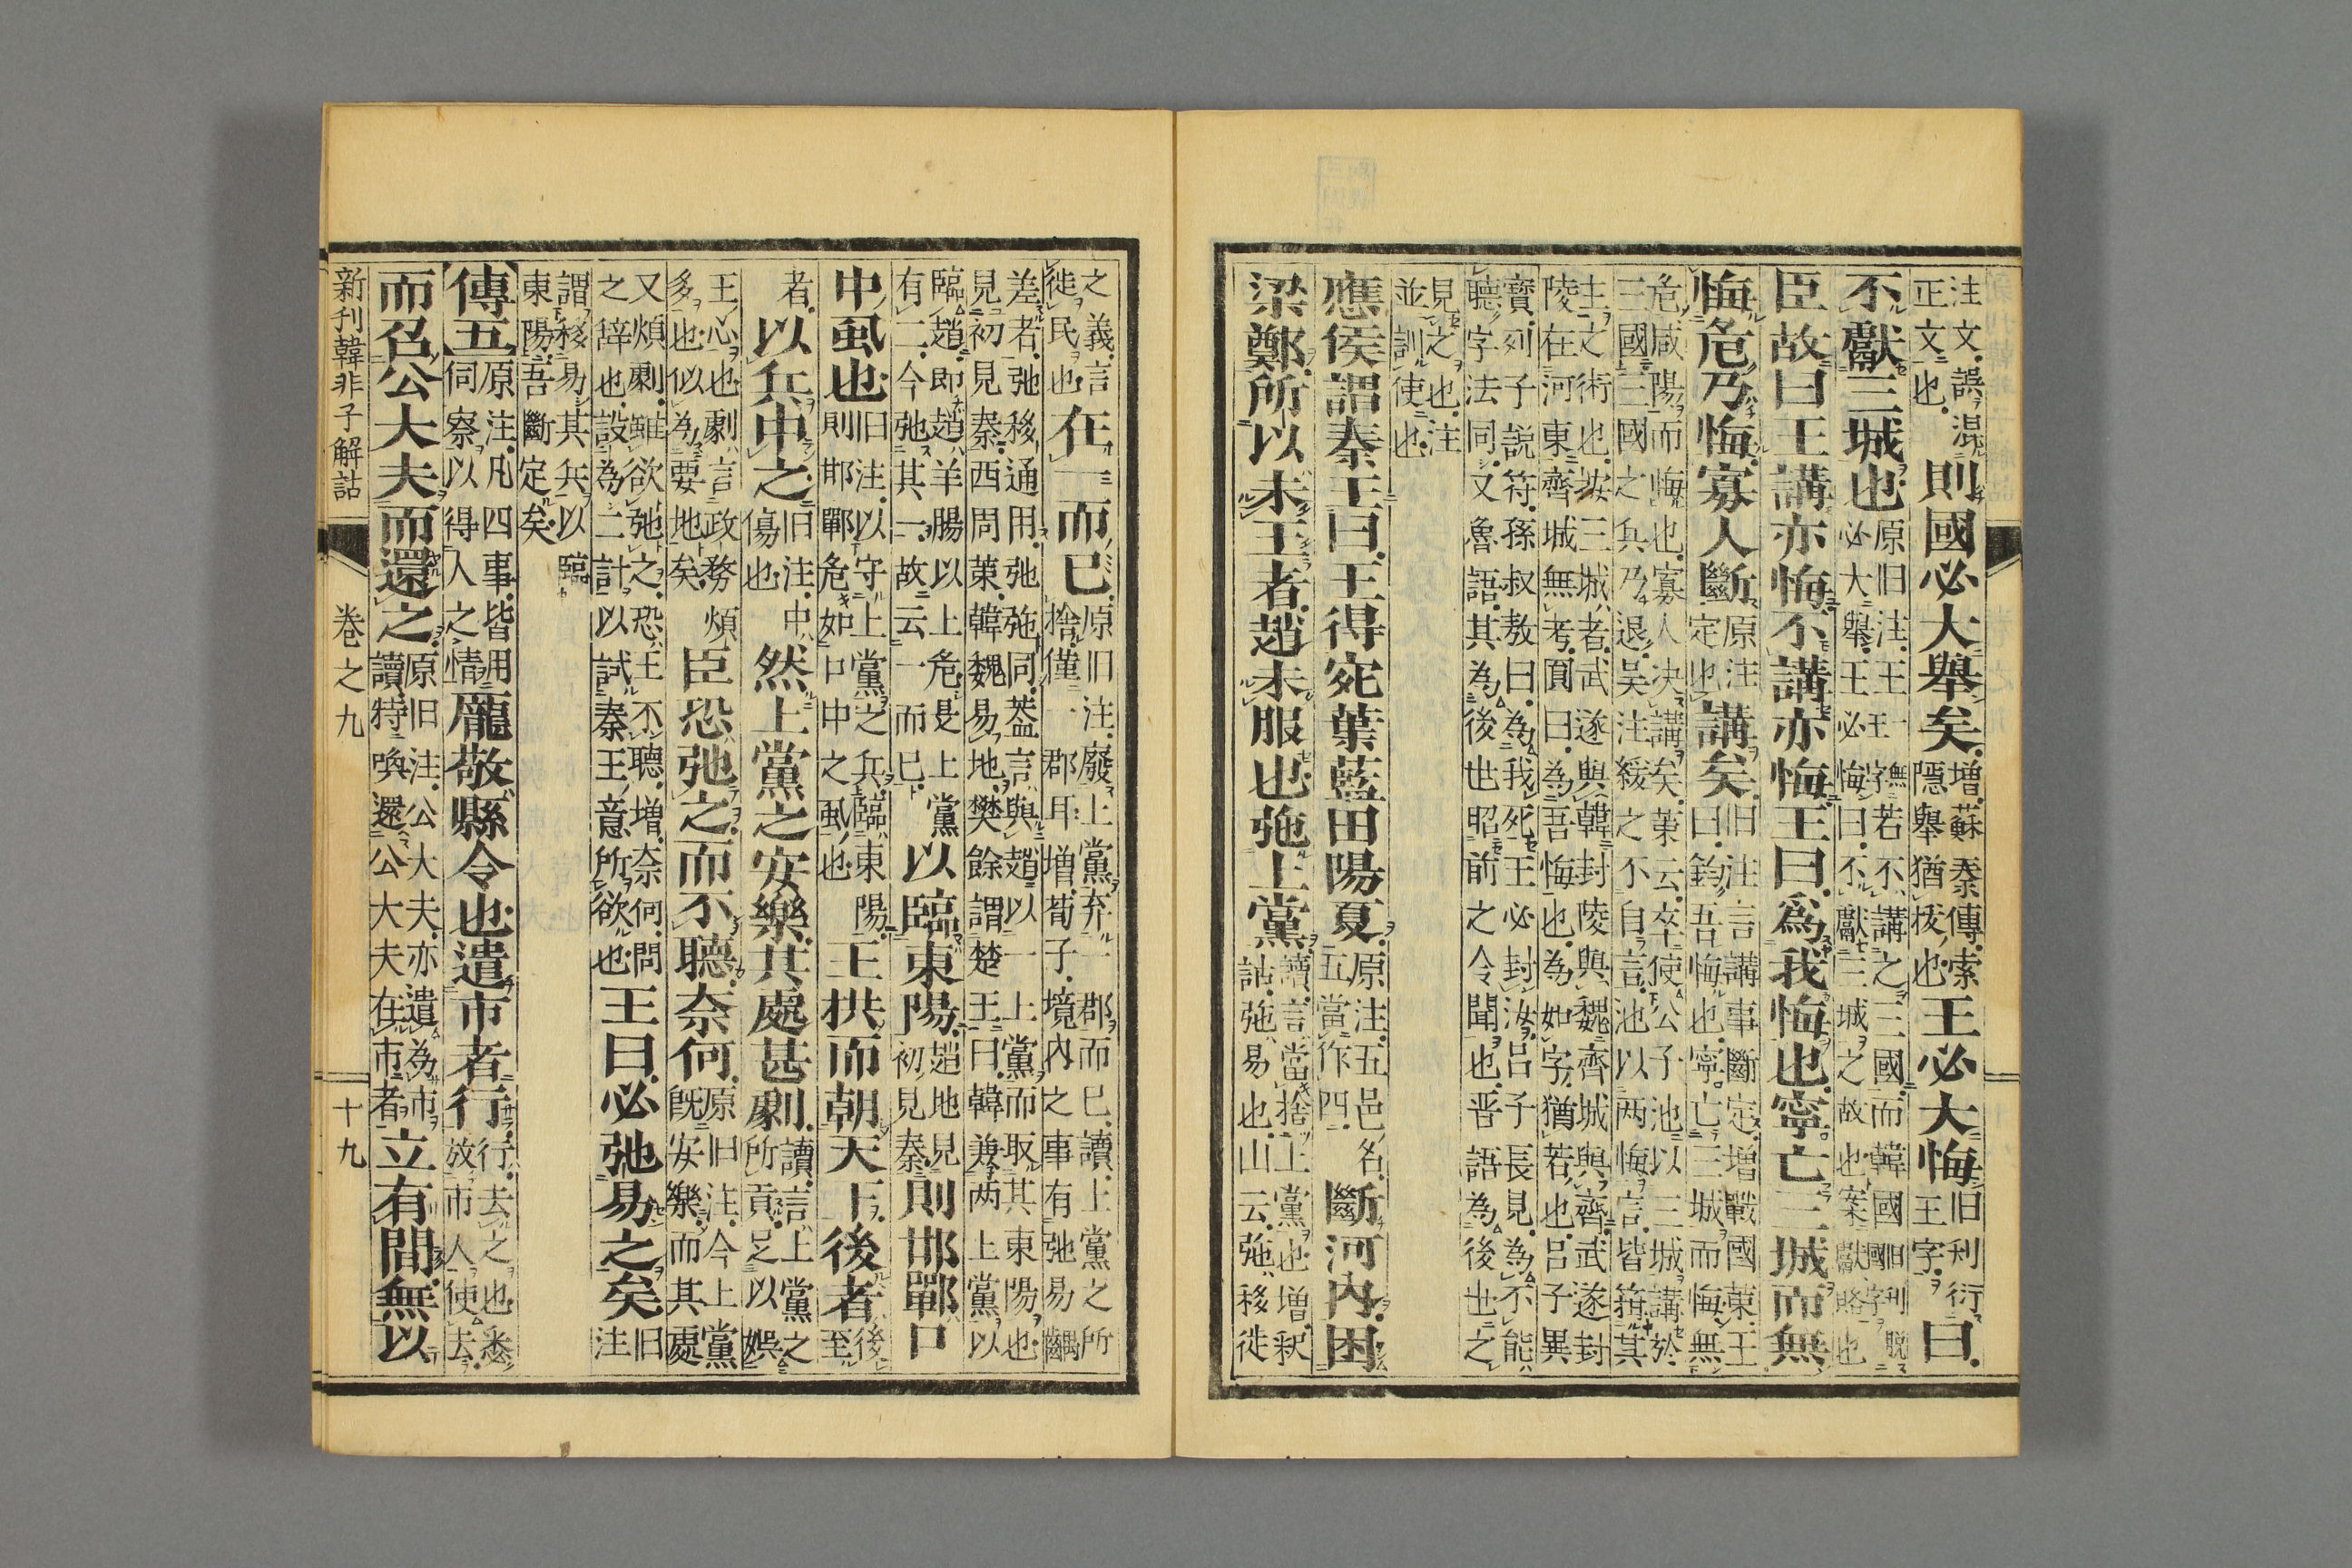 注文。誤混
正文也。
則國必大舉矣。
増。蘇秦傳。索
隱。舉猶拔也
王必大悔
旧刊衍
王字。
曰。
不獻三城也
原旧注。王一無王字若不講之三國而韓國旧刊脱國字
必大舉。王必悔曰。不獻三城之故也案獻賂也
臣故曰王講亦悔不講亦悔王曰。爲我悔也寧亡三城而無
悔危乃悔寡人斷
原注
定也
講矣。
旧注言講事斷定。增戰國策。王
曰。鈞吾悔也。寧亡三城而悔無
危咸陽而悔也。寡人決講矣。策云。卒使公子池以三城講於
三國三國之兵乃退。吳注緩之不自言。池以两悔言。皆箝其
主之術也。按三城者。武遂與韓封陵與魏齊城與齊武遂封
陵在河東。齊城無考。圓曰。為吾悔也。為如字猶若也。呂子異
寶。列子說符。孫叔敖曰。為我死王必封汝。呂子長見。為不能
聽字法同。又魯語。其為後世昭前之令聞也。晋語為後世之
見之也。注
並訓使也。
應侯謂秦王曰。王得宛葉藍田陽夏。
原注。五邑名。
五當作四。
斷河內。困
梁鄭所以未王者。趙未服也弛上黨
讀。言當捨上黨也。増釈
詁。弛易也。山云。弛移徙
之義。言
徙民也
在一而已。
原旧注。廢上黨弃一郡而已。讀。上黨之所
捨僅一郡耳増荀子。境內之事有弛易齵
差者。弛移通用。弛弛同。葢言。與趙以一上黨而取其東陽也。
見初見秦。西周策。韓魏易地。樊餘謂楚王曰。韓兼两上黨以
臨趙。即趙羊腸以上危。是上黨
有二。今弛其一。故云一而已
以臨東陽。
趙地見
初見秦。
則邯鄲口
中虱也
旧注。以守上黨之兵臨東陽。
則邯鄲危如口中之虱也
王拱而朝天下。後
者。
後
至
者。以兵中之。
旧注。中
傷也
然上黨之安樂。其處甚劇。
讀。言上黨之
所貢足以娯
王心也劇。言政務煩
多也似為要地矣。
臣恐弛之。而不聽。奈何。
原旧注。今上黨
旣安樂而其處
又煩劇。雖欲弛之。恐王不聽。増。奈何。問
之辞也。設為二計以試秦王意所欲也
王曰。必弛易之矣
旧
注
謂移易其兵以臨
東陽。吾斷定矣。
傳五
原注。凡四事。皆用
伺察以得人之情
龐敬縣令也遣市者行。
行。去之也悉
放市人使去。
而召公大夫而還之。
原旧注。公大夫。亦遣為市。
讀。特喚還公大夫在市者
立有間無以
新刊韓非子解詁
卷之九
十九